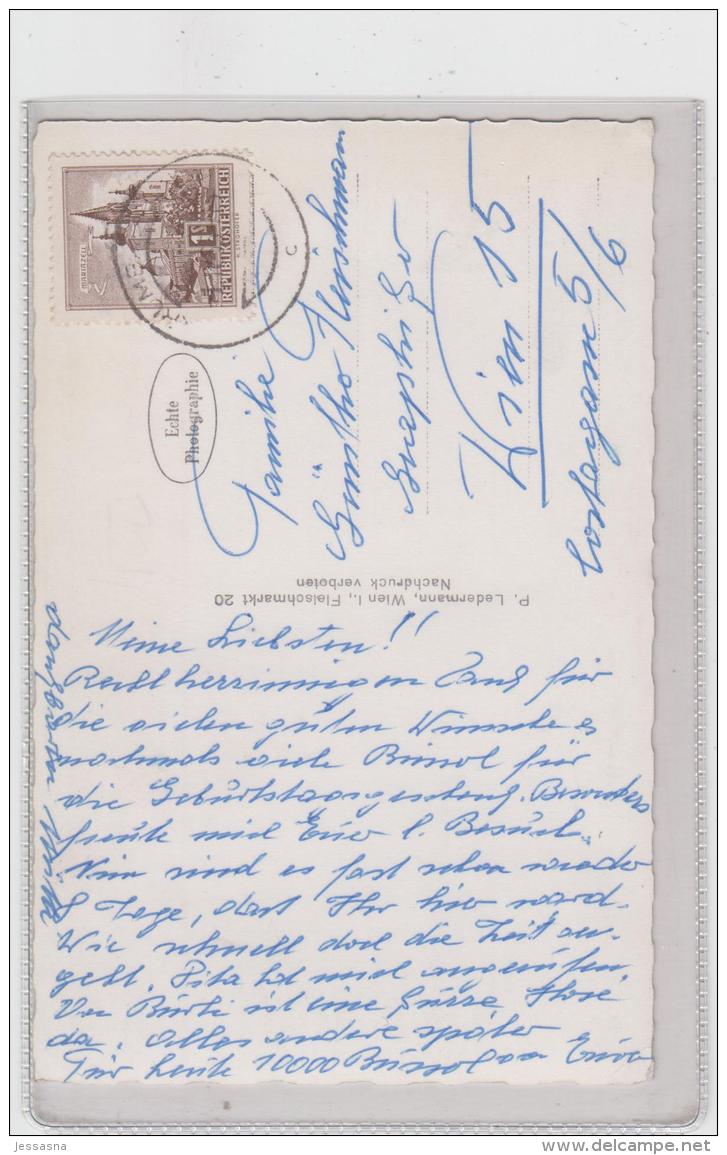 MARIAZELL
1S
REPUBLIK ÖSTERREICH
C
Echte
Photographie
Familie
Wien 15
5/6
P. Ledermann, Wien I., Fleischmarkt 20
Nachdruck verboten
Meine Liebsten!!
Recht herzinnigen Dank für
die vielen guten Wünsche
nochmals viele Bussol für
die Besonders
freute mich Euer l. Besuch.
Nun sind es fast schon wieder
8 Tage, dass Ihr hier ward.
Wie schnell doch die Zeit
geht. hat mich angerufen.
ist eine Hose
da. Alles andere später
Für heute 10000 Bussol von Eurer
jessasna
www.delcampe.net